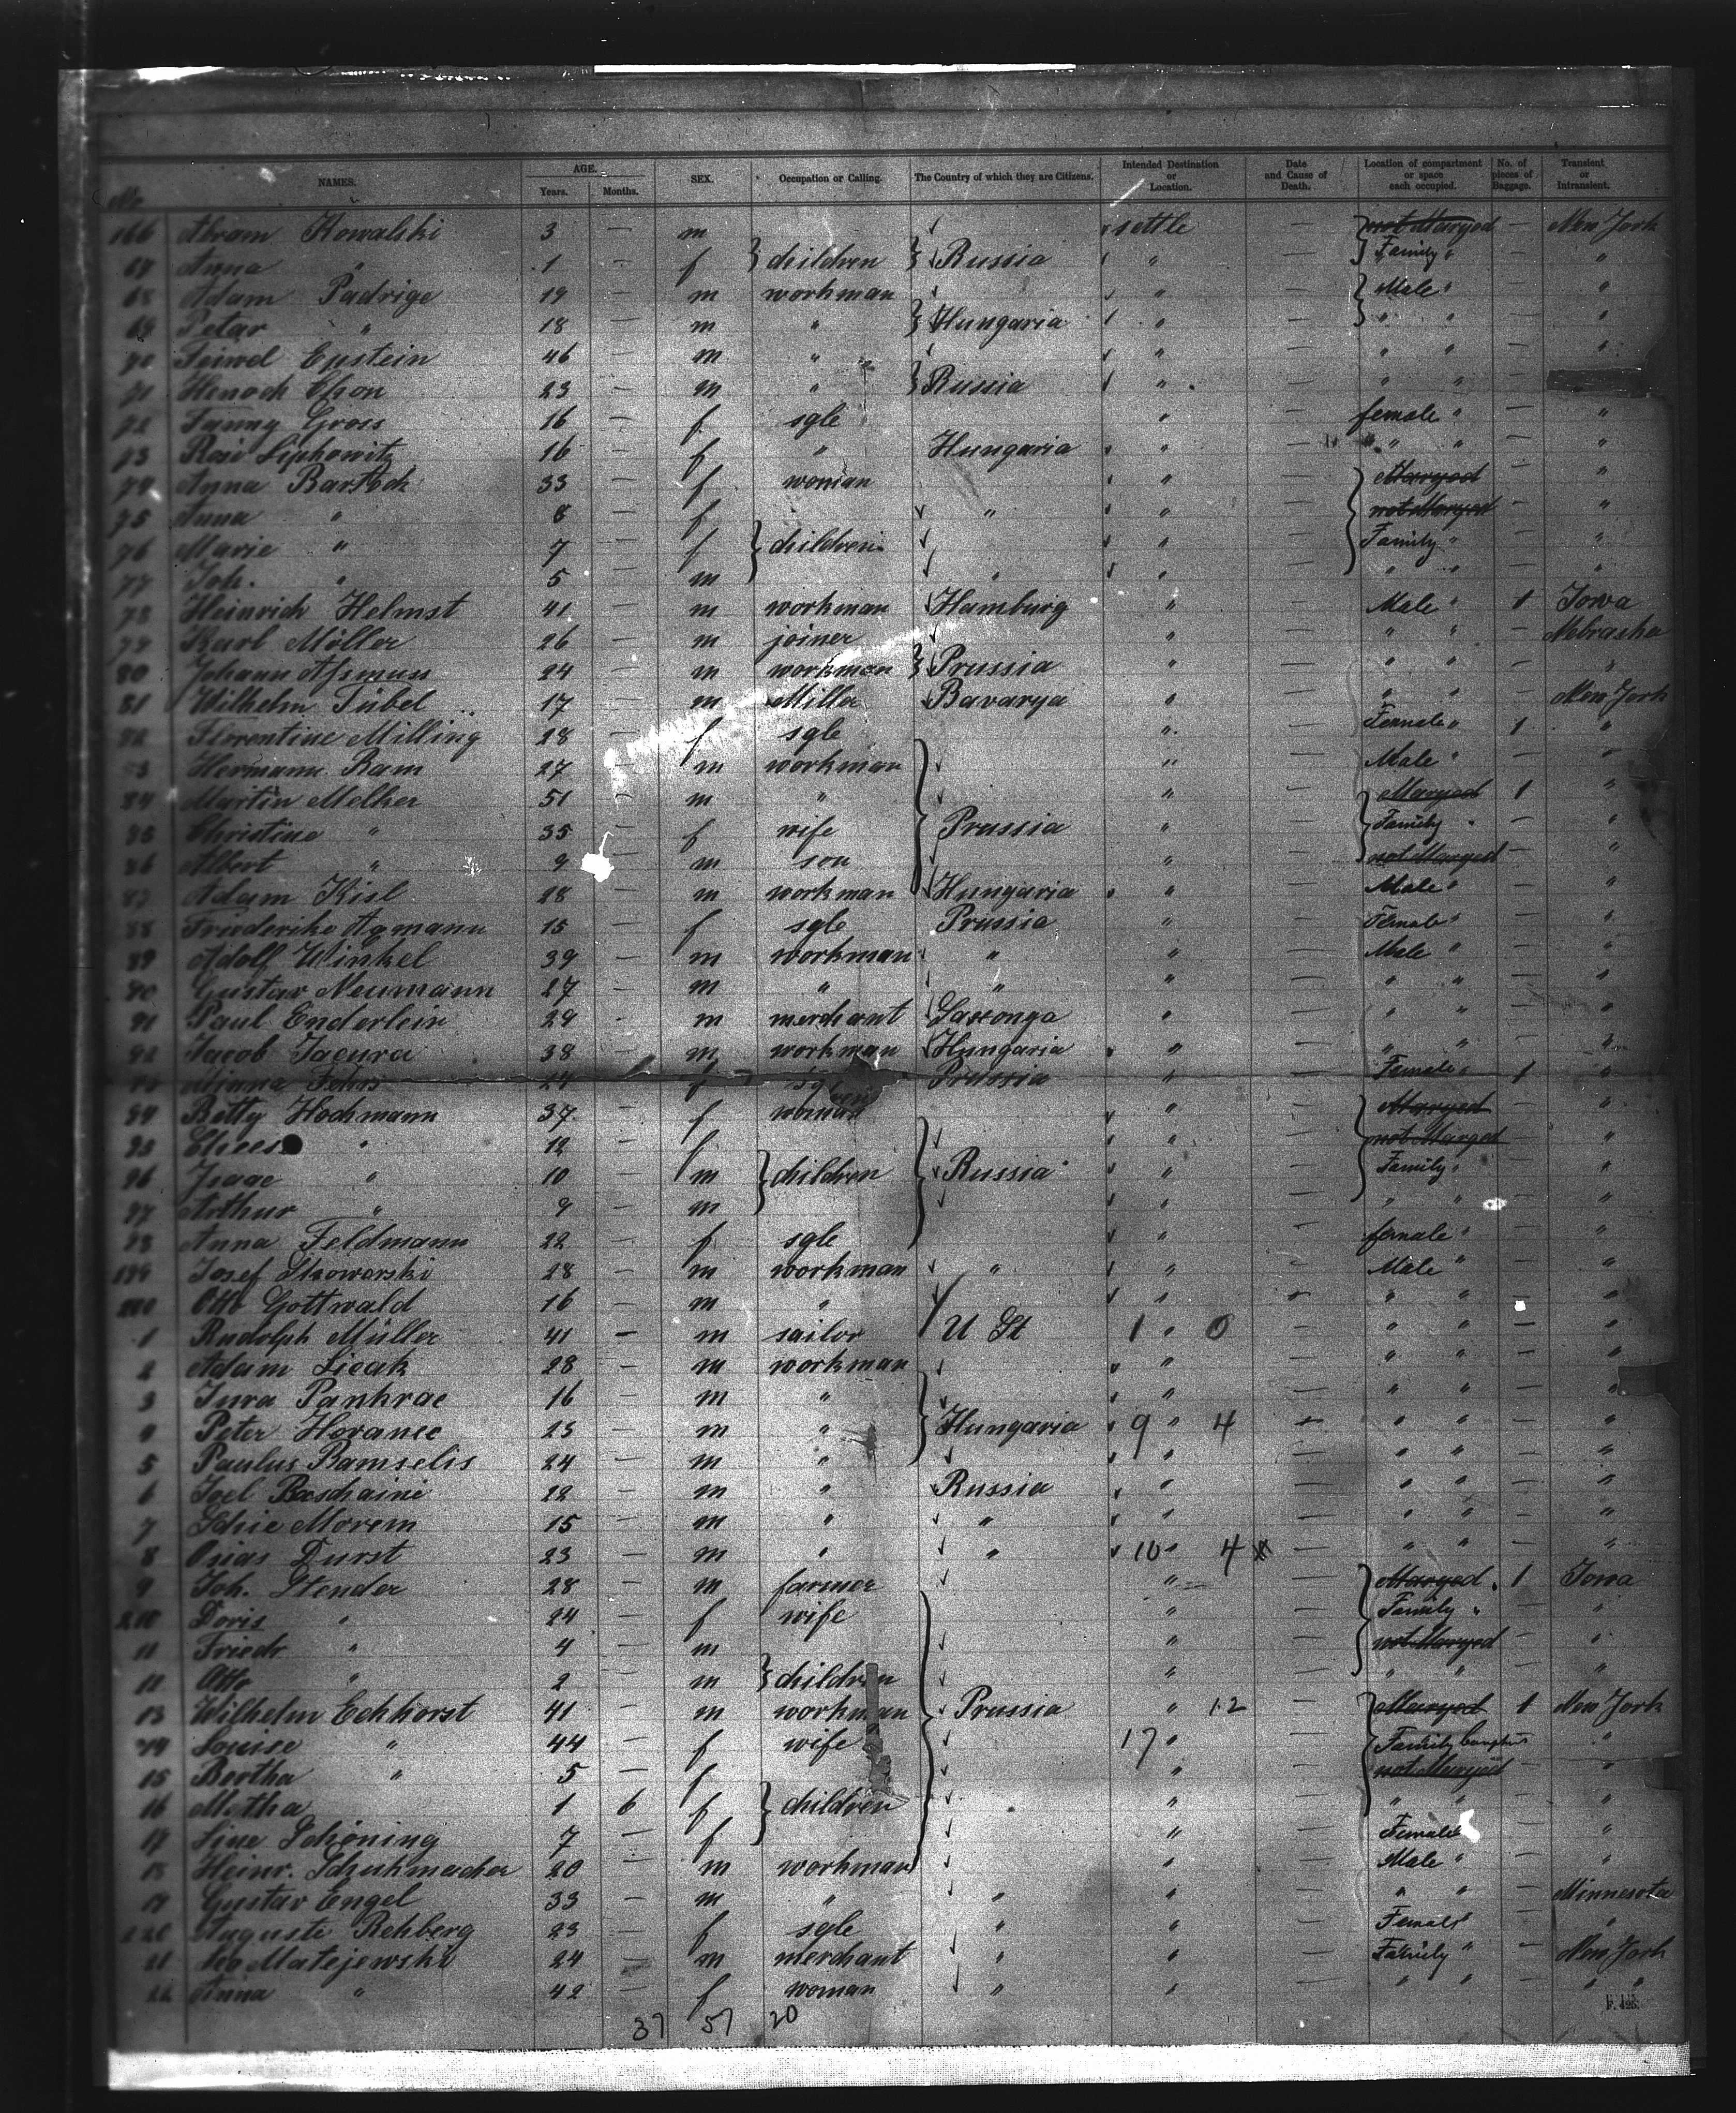 No NAMES. AGE. Years. Months. SEX. Occupation or Calling. The Country of which they are Citizens. Intended Destination or Location. Date and Cause of Death. Location of compartment or space each occupied. No. of pieces of Baggage. Transient or Intransient.
166 Abram Kowalski 3 — m settle — not Maryed — New York
67 Anna " 1 — f } children } Russia " — Family " — "
68 Adam Padrige 19 — m workman " — } Male " — "
69 Petar " 18 — m " } Hungaria " — " " — "
70 Feiwel Epstein 46 — m " " — " " — "
71 Henoch 23 — m " } Russia " — " " —
72 Fanny Gross 16 — f sgle " — female " — "
73 Rosi Lipkowitz 16 — f " Hungaria " — " " — "
74 Anna Bartsch 33 — f woman " — Maryed — "
75 Anna " 8 — f " " — not Maryed — "
76 Marie " 7 — f } children " — Family " — "
77 Joh. " 5 — m " " — " " — "
78 Heinrich Helmst 41 — m workman Hamburg " — Male " 1 Iowa
79 Karl Möller 26 — m joiner " — " " — Nebraska
80 Johann Assmuss 24 — m workman } Prussia " — " " — "
81 Wilhelm Tübel 17 — m Miller Bavarya " — " " — New York
82 Florentine Milling 28 f sgle " — Female " 1 "
83 Hermann Ram 27 m workman " — Male " — "
84 Martin Melker 51 — m " " — Maryed 1 "
85 Christine " 35 — f wife Prussia " — Family " — "
86 Albert " 9 m son " — not Maryed — "
87 Adam Kisl 28 — m workman Hungaria " — Male " — "
88 Friederike Agmann 15 — f sgle Prussia " — Female " — "
89 Adolf Winkel 39 — m workman " " — Male " — "
90 Gustav Neumann 27 — m " " " — " " — "
91 Paul Enderlein 29 - m merchant Saxonya " — " " — "
92 Jacob Jacura 38 m workman Hungaria " — " " — "
93 Minna Fehrs 24 f sgle Prussia " — Female " 1 "
94 Betty Hochmann 37 — f woman " — Maryed — "
95 " 12 — f " — not Maryed — "
96 Isaac " 10 — m } children Russia " — Family " — "
97 Arthur " 9 — m " — " " — "
98 Anna Feldmann 22 — f sgle " — female " — "
199 Josef 28 — m workman " " - Male " — "
200 Otto Gottwald 16 — m " " — " " — "
1 Rudolph Müller 41 — m sailor U St 1 " 0 — " " — "
2 Adam Licak 28 — m workman " — " " — "
3 Jura Pankrac 16 — m " " — " " — "
4 Peter Horanec 23 — m " Hungaria 9 " 4 — " " — "
5 Paulus Bamselis 24 — m " " — " " — "
6 Joel 22 — m " Russia " — " " — "
7 Schie Morem 15 — m " " " — " " — "
8 Osias Durst 23 — m " " 10 " 4 x — " " — "
9 Joh. Stender 28 — m farmer " — Maryed 1 Iowa
210 Doris " 24 — f wife " — Family " — "
11 Friedr " 4 — m " — not Maryed — "
12 Otto " 2 — m } children " — " " — "
13 Wilhelm Eckhorst 41 — m workman Prussia " 12 — Maryed 1 New York
14 Louise " 44 — f wife 17 " — Family — "
15 Bertha " 5 — f " — not Maryed — "
16 Metha 1 6 f } children " — " " — "
17 Line Schöning 7 — f " — Female — "
18 Heinr. Schuhmacher 20 — m workman " — Male " — "
19 Gustav Engel 33 — m " " " — " " — Minnesota
220 Auguste Rehberg 23 — f sgle " " — Female — "
21 Leo Matejewski 24 m merchant " " — Family " — New York
22 Anna " 42 — f woman " " — " " — " "
37 57 20
F. 425.